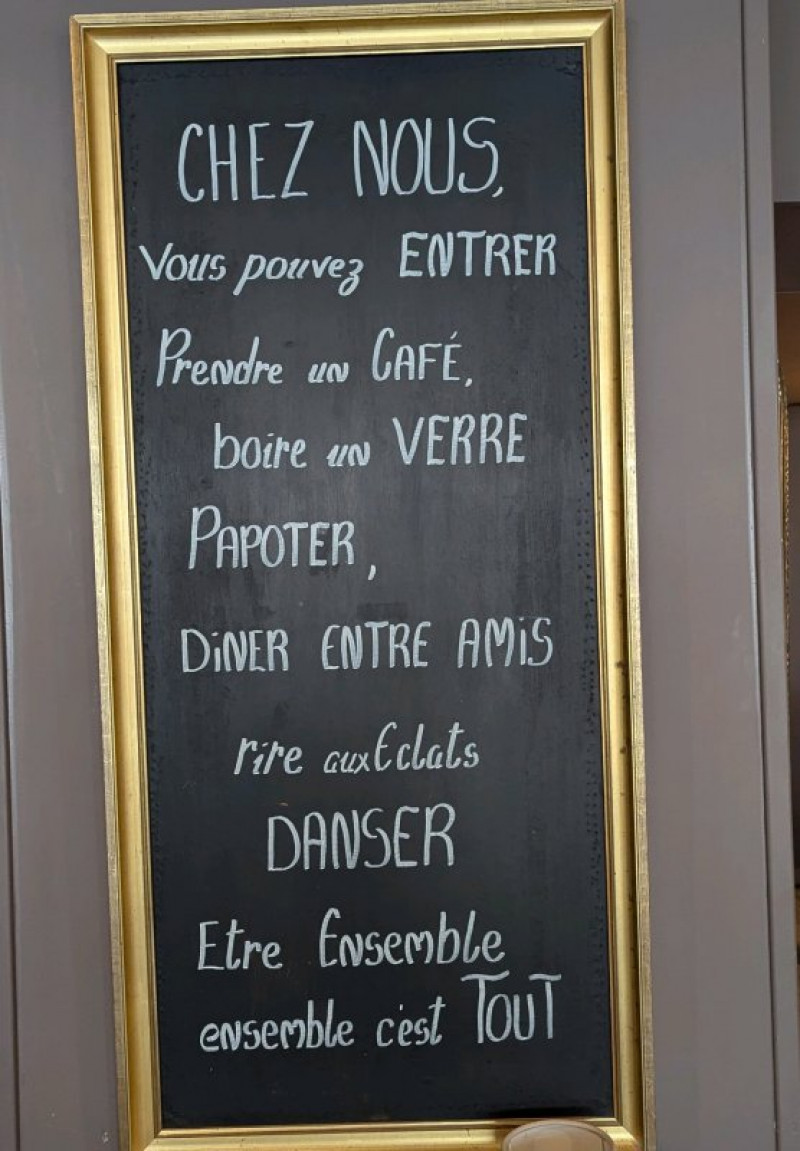 CHEZ NOUS,
Vous pouvez ENTRER
Prendre un CAFÉ,
boire un VERRE
PAPOTER,
DiNER ENTRE AMiS
rire aux Eclats
DANSER
Etre Ensemble
ensemble c'est TOUT